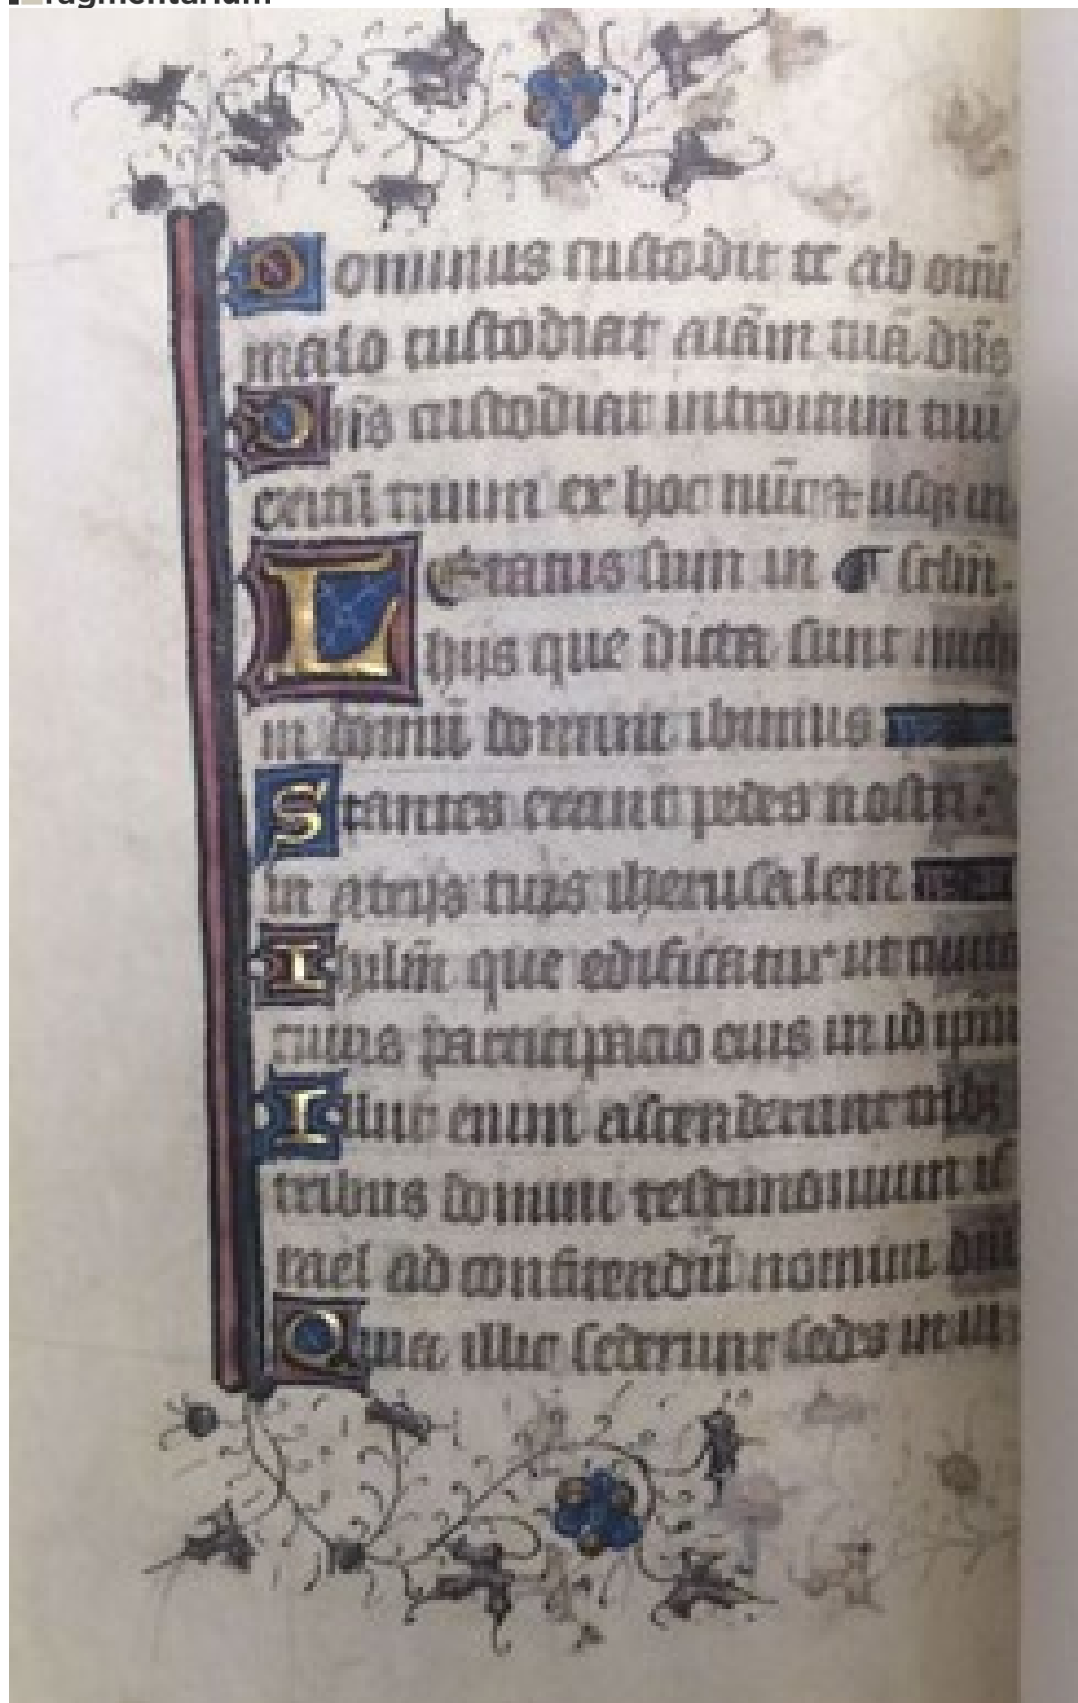 ragmentarium
Dominus custodit te ab om̄i
malo custodiat aīam tuā dn̄s
Dn̄s custodiat introitum tuū
exitū tuum ex hoc nūc et usq̨ in
Letatus sum in sclm̄.
hijs que dicta sunt michi
in domū domini ibimus
Stantes erant pedes nostri
in atrijs tuis iherusalem
Ihrlm̄ que edificatur ut ciuitas
cuius participacio eius in id ipm̄
Illuc enim ascenderunt tribȝ
tribus domini testimonium is
rael ad confitendū nomini dn̄i
Quia illic sederunt sedes in iu